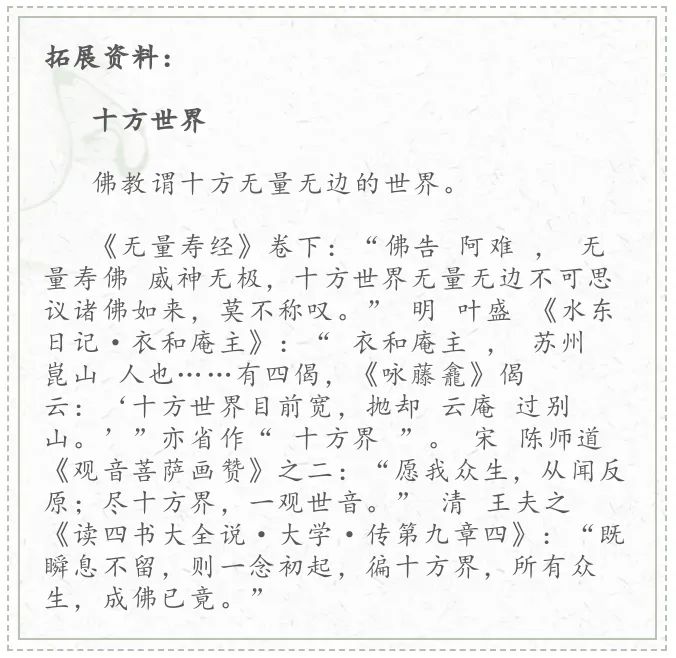 拓展资料：
十方世界
佛教谓十方无量无边的世界。
《无量寿经》卷下：“佛告 阿难 ， 无
量寿佛 威神无极，十方世界无量无边不可思
议诸佛如来，莫不称叹。” 明 叶盛 《水东
日记·衣和庵主》：“ 衣和庵主 ， 苏州
崑山 人也……有四偈，《咏藤龕》偈
云：‘十方世界目前宽，抛却 云庵 过别
山。’”亦省作“ 十方界 ”。 宋 陈师道
《观音菩萨画赞》之二：“愿我众生，从闻反
原；尽十方界，一观世音。” 清 王夫之
《读四书大全说·大学·传第九章四》：“既
瞬息不留，则一念初起，徧十方界，所有众
生，成佛已竟。”